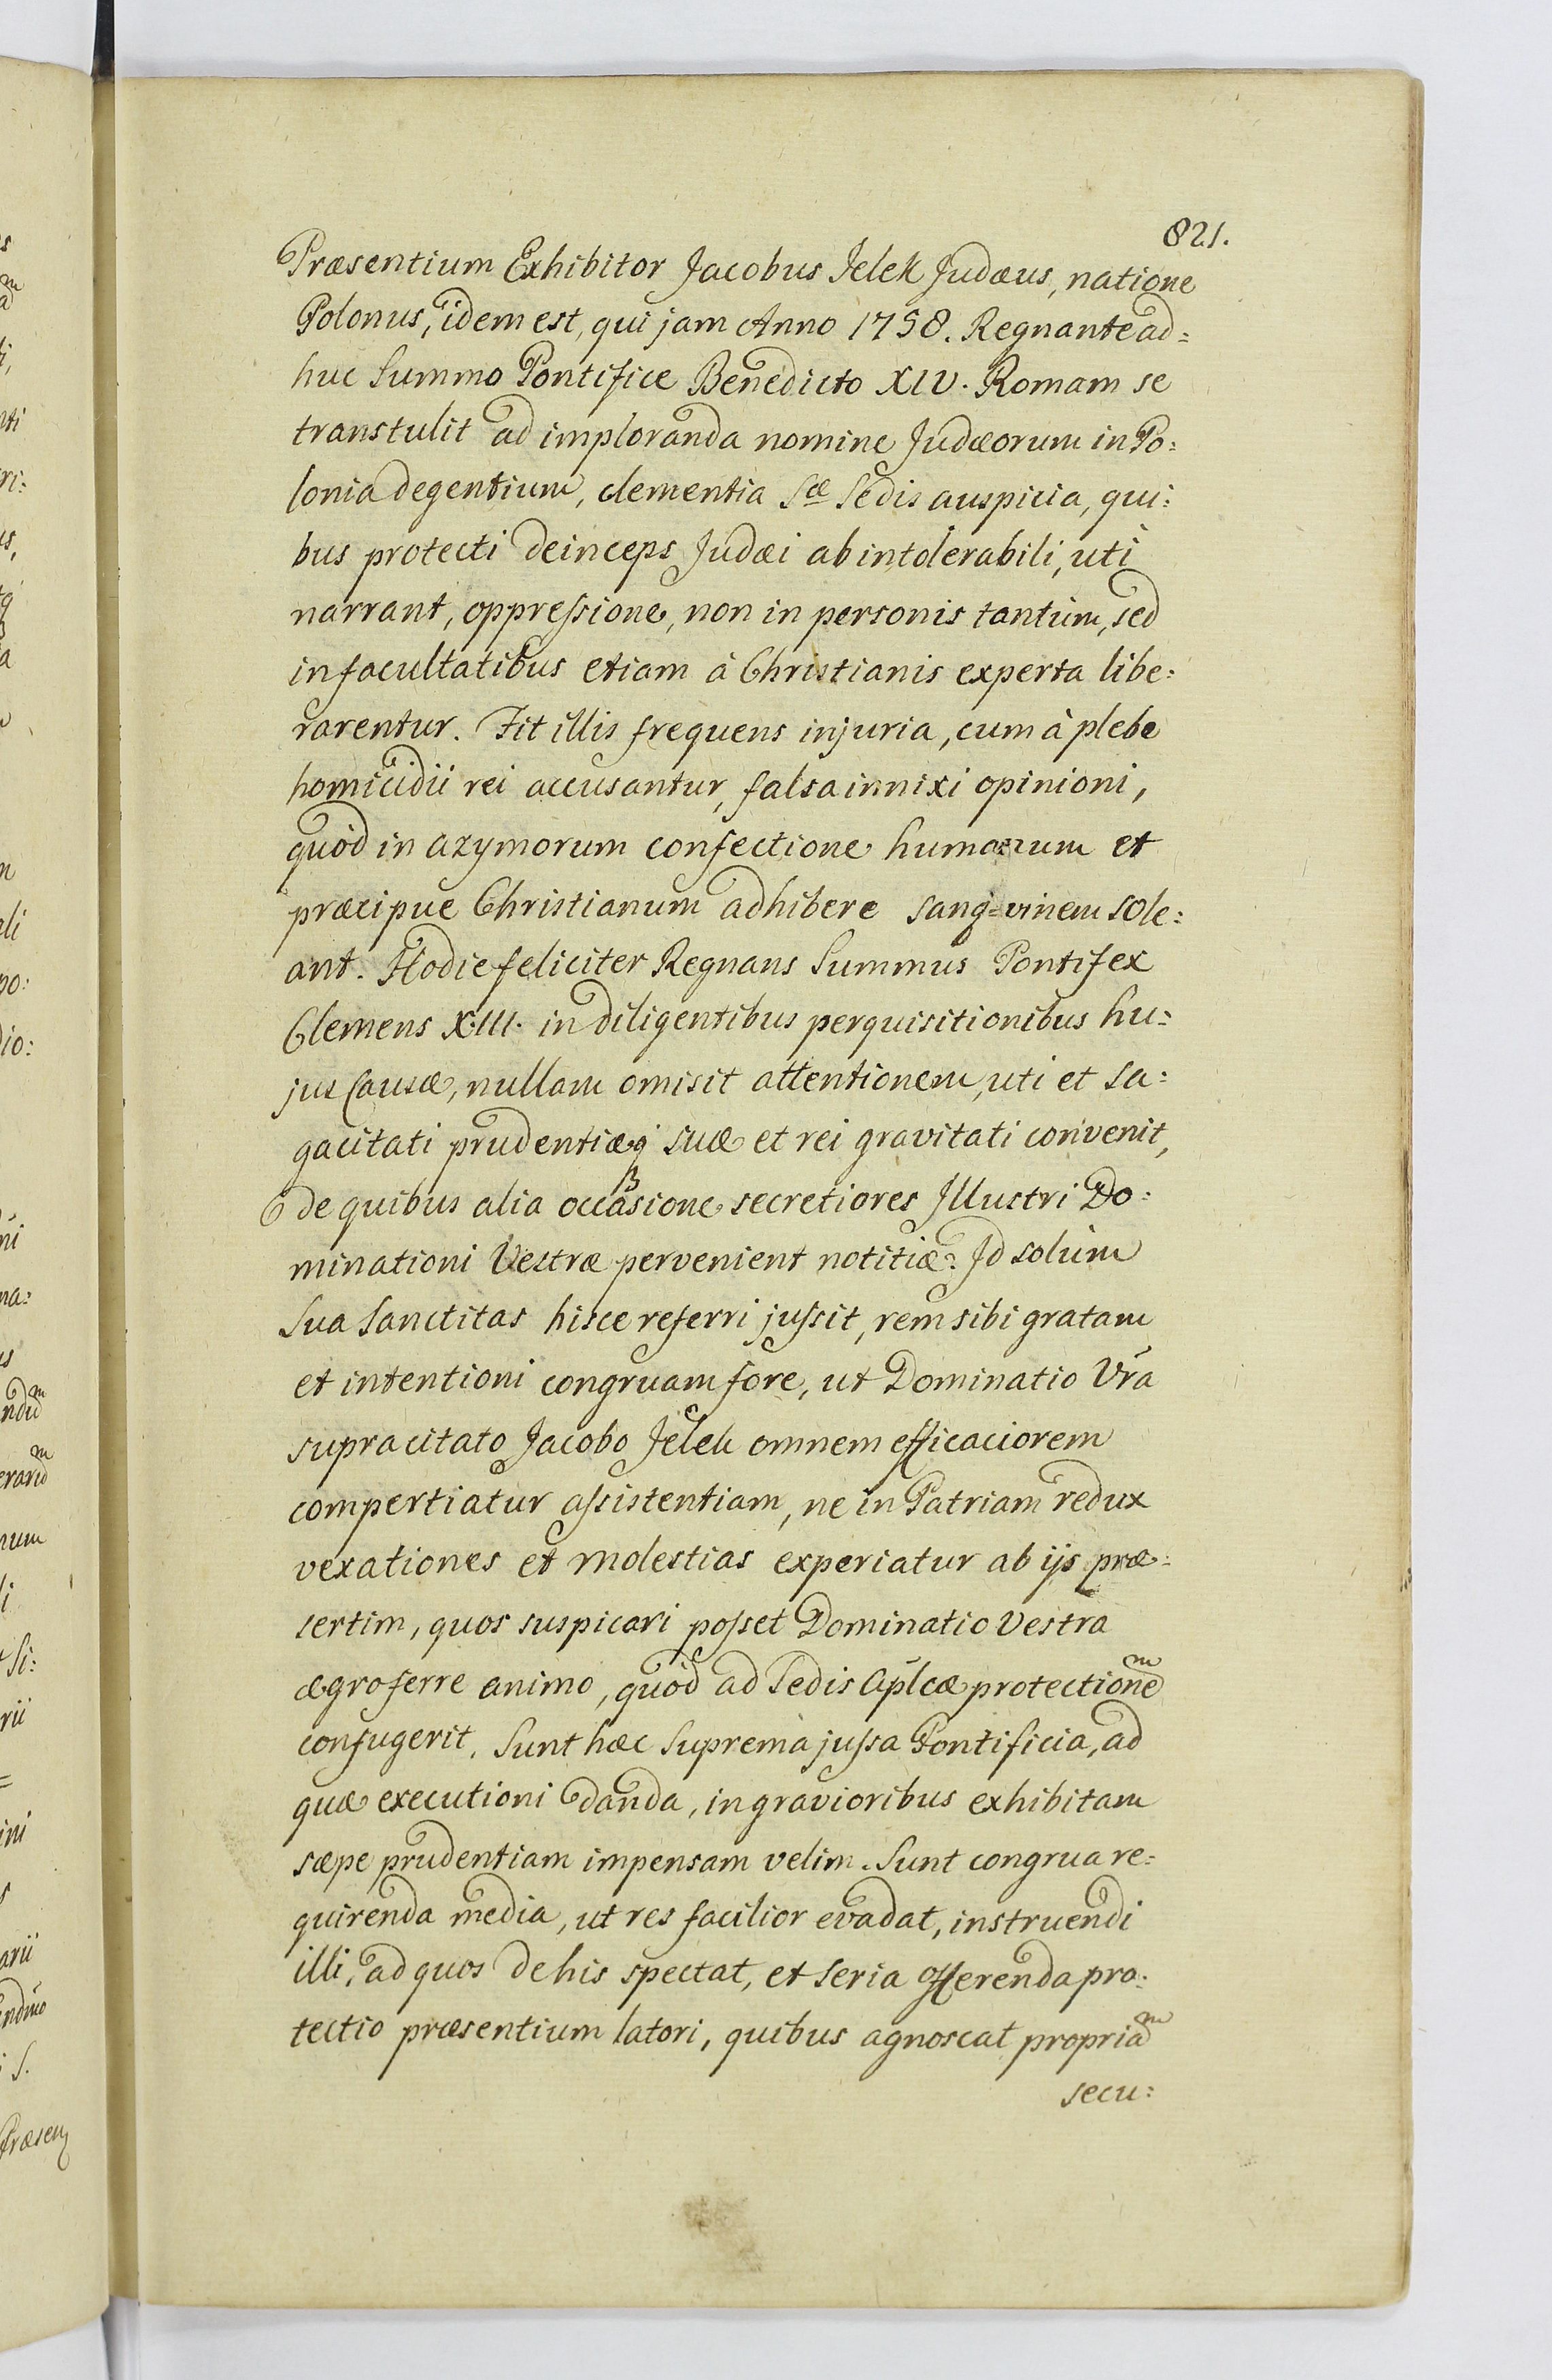 821.
Præsentium Exhibitor Jacobus Jelek Judæus, natione
Polonus, idem est, qui jam Anno 1758. Regnante ad=
huc Summo Pontifice Benedicto XIV. Romam se
transtulit ad imploranda nomine Judæorum in Po=
lonia degentium, clementia Sæ Sedis auspicia, qui=
bus protecti deinceps Judæi ab intolerabili, uti
narrant, oppressione, non in personis tantùm, sed
in facultatibus etiam à Christianis experta libe=
rarentur. Fit illis frequens injuria, cum à plebe
homicidii rei accusantur, falsa innixi opinioni,
quòd in azymorum confectione humanum et
præcipue Christianum adhibere sang=vinem sole=
ant. Hodie feliciter Regnans Summus Pontifex
Clemens XIII. in diligentibus perquisitionibus hu=
jus Causæ, nullam omisit attentionem, uti et sa=
gacitati prudentiæq suæ et rei gravitati convenit,
de quibus alia occasione secretiores Illustri Do=
minationi Vestræ pervenient notitiæ. Id solùm
Sua Sanctitas hisce referri jussit, rem sibi gratam
et intentioni congruam fore, ut Dominatio Vra
supracitato Jacobo Jelek omnem efficaciorem
compertiatur assistentiam, ne in Patriam redux
vexationes et molestias experiatur ab ijs præ=
sertim, quos suspicari posset Dominatio Vestra
ægro ferre animo, quòd ad Sedis Aplcæ protectionem
confugerit. Sunt hæc Suprema jussa Pontificia, ad
quæ executioni danda, in gravioribus exhibitam
sæpe prudentiam impensam velim. Sunt congrua re=
quirenda media, ut res facilior evadat, instruendi
illi, ad quos de his spectat, et seria offerenda pro=
tectio præsentium latori, quibus agnoscat propriam
secu=